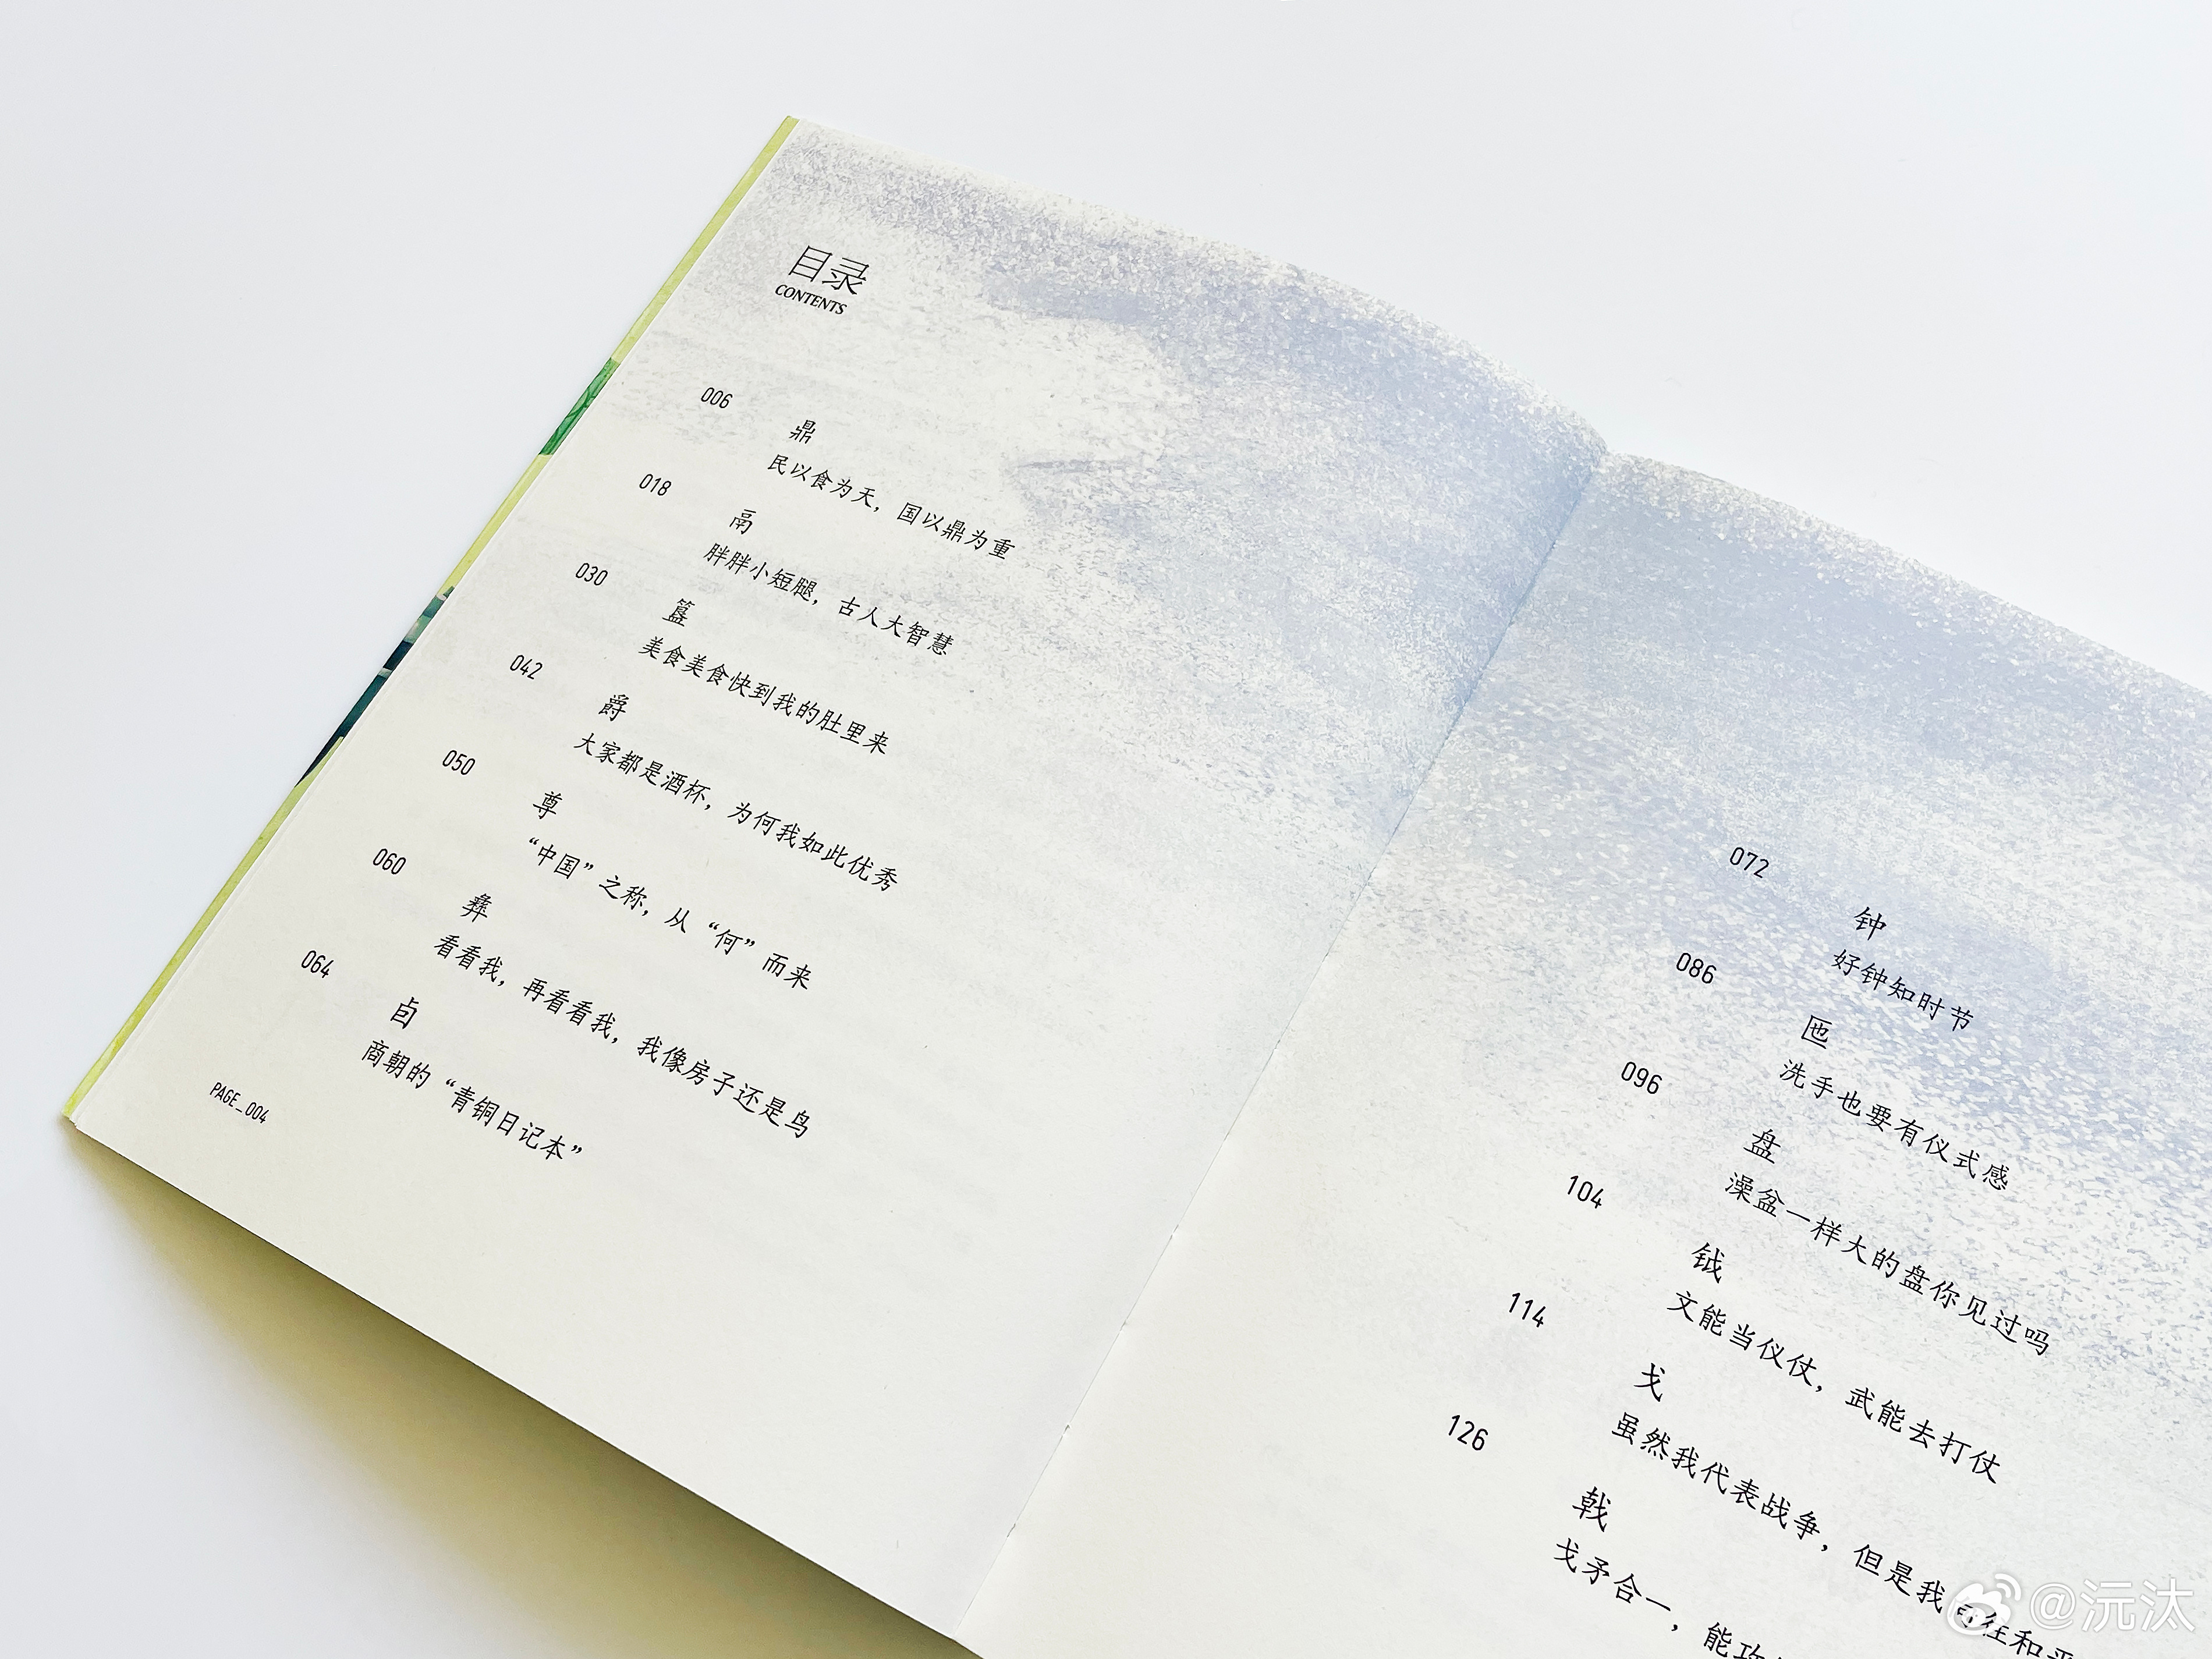 目录
CONTENTS
006
鼎
民以食为天，国以鼎为重
018
鬲
胖胖小短腿，古人大智慧
030
簋
美食美食快到我的肚里来
042
爵
大家都是酒杯，为何我如此优秀
050
尊
“中国”之称，从“何”而来
060
彝
看看我，再看看我，我像房子还是鸟
064
卣
商朝的“青铜日记本”
PAGE_004
072
钟
好钟知时节
086
匜
洗手也要有仪式感
096
盘
澡盆一样大的盘你见过吗
104
钺
文能当仪仗，武能去打仗
114
戈
虽然我代表战争，但是我向往和平
126
戟
戈矛合一，能攻
@沅汰